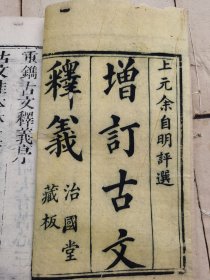 上元余自明評選
增訂古文
釋義
治國堂
藏板
重鐫古文釋義序